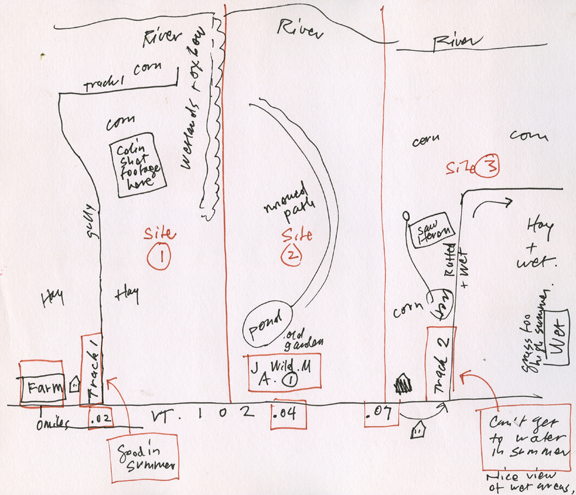 River
River
River
Track 1
corn
corn
Colin
Shot
footage
here
Wetlands + oxbow
gully
Site
1
Hay
Hay
Farm
Track 1
0 miles
.02
Good in
summer
VT. 102
mowed
path
Site
2
pond
old
garden
J. Wild. M
A. 1
.04
.07
corn
corn
Site 3
Saw
Heron
Rutted
+ wet
corn
Track 2
Hay
+
wet.
grass too
high summer.
Wet
Can't get
to water
in summer
Nice view
of wet areas.